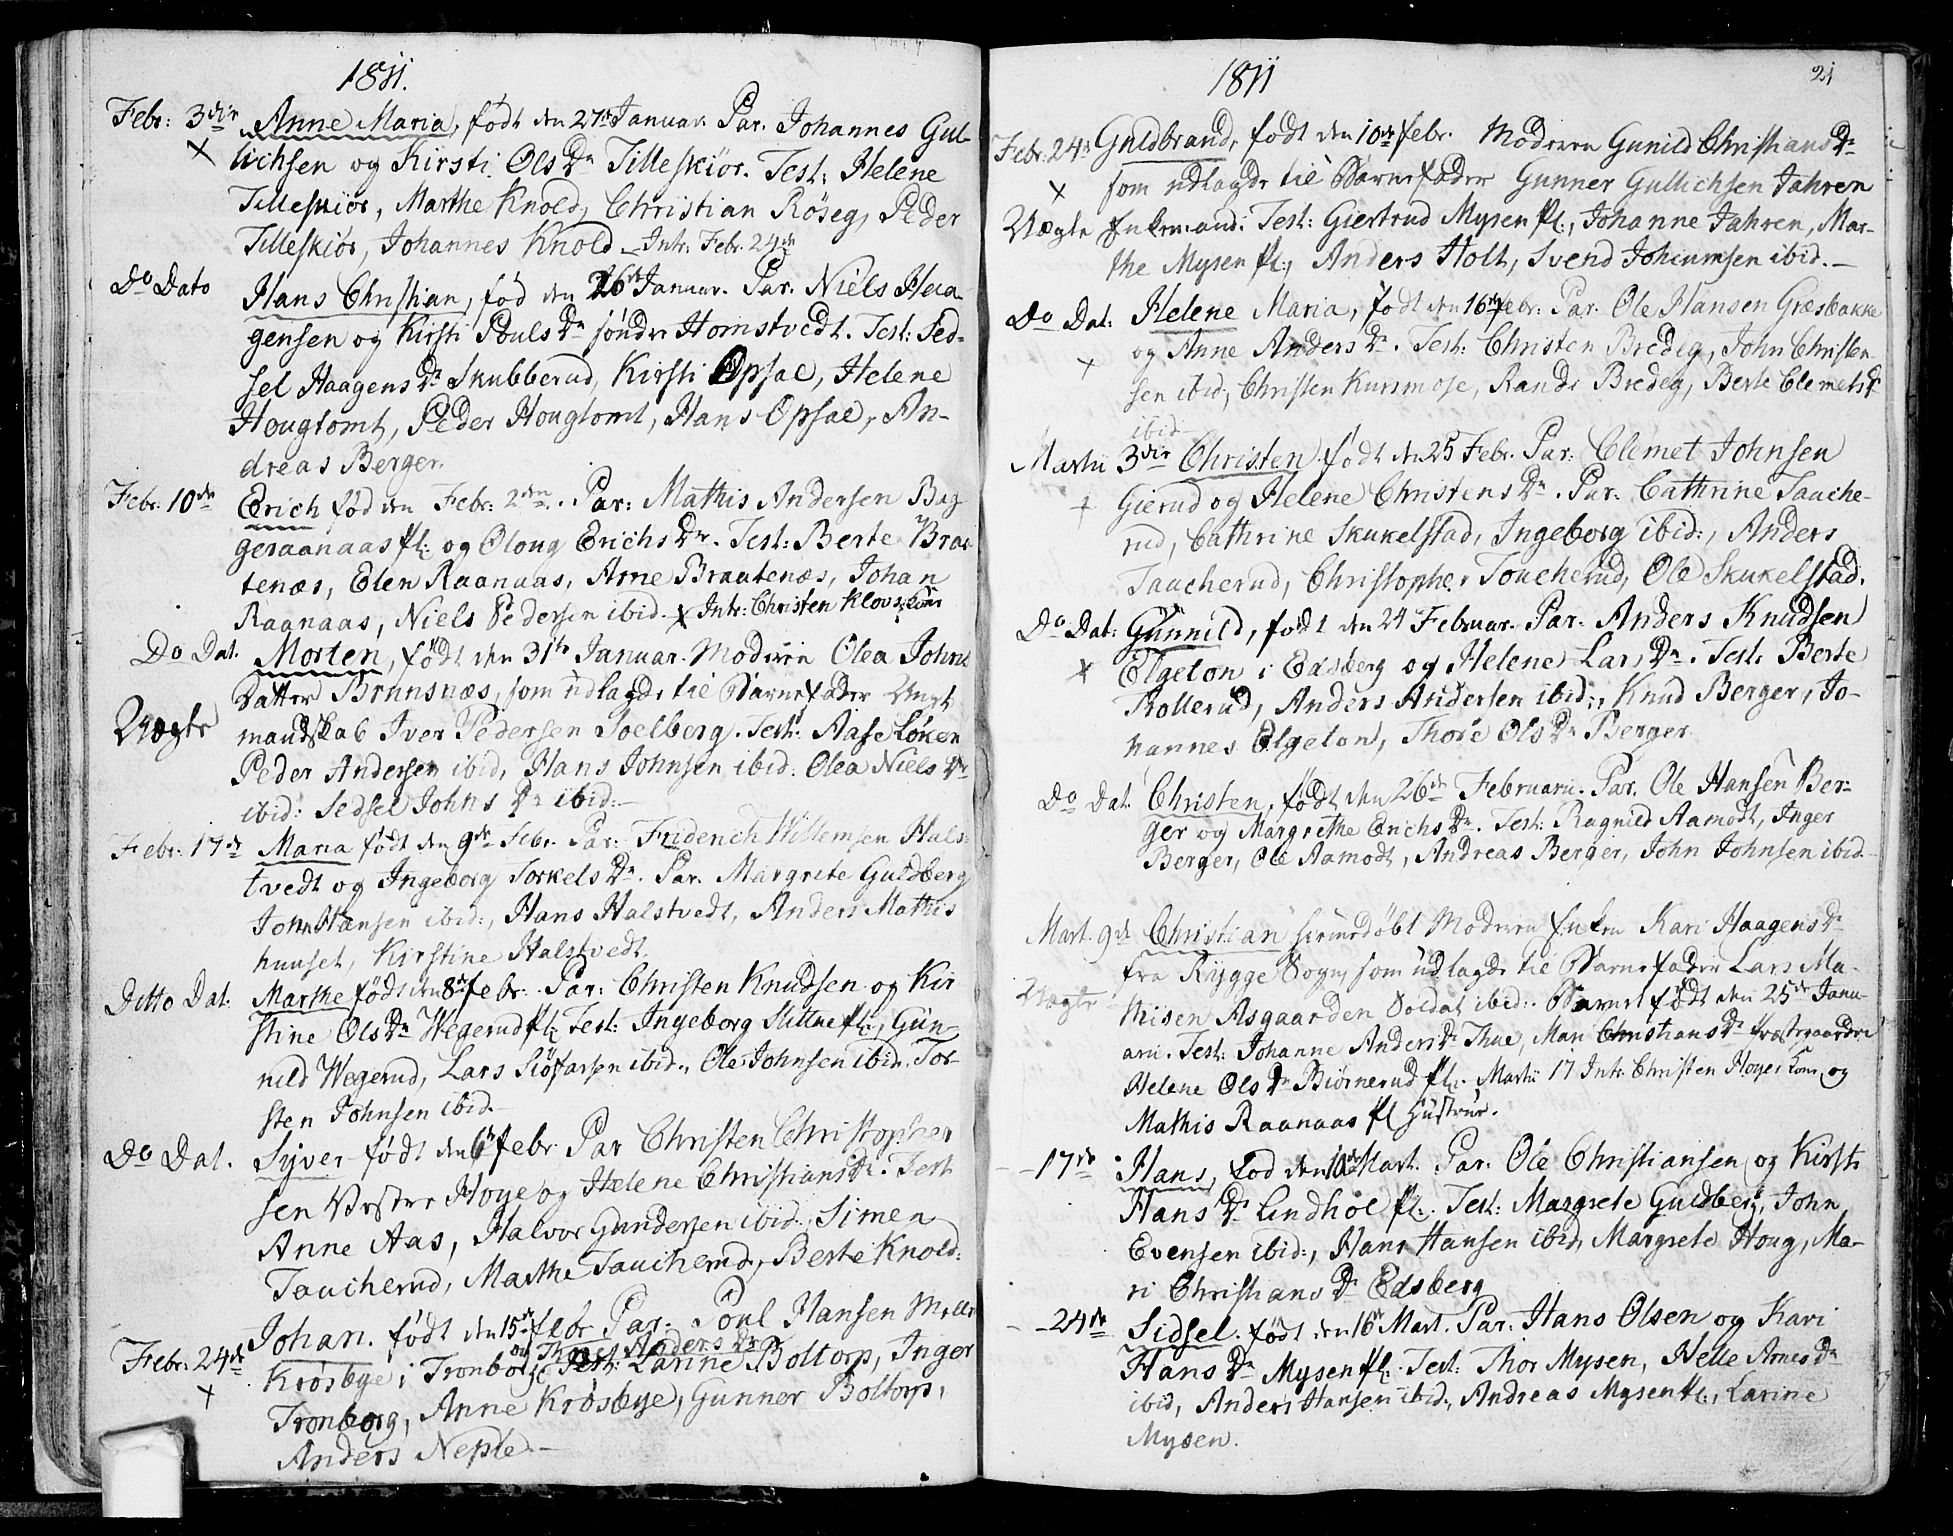 1811.
Febr: 3die Anne Maria, født den 27de Januar. Par. Johannes Gul-
lichsen og Kirsti Ols Dr Tilleskiør. Test: Helene
Tilleskiør, Marthe Knold, Christian Røseg, Peder
Tilleskiør, Johannes Knold _ Intr: Febr. 24de
Do Dato Hans Christian, fød den 26de Januar. Par. Niels Haa-
gensen og Kirsti Pouls Dr søndre Homstvedt. Test: Sed-
sel Haagens Dr Skubberud, Kirsti Opsal, Helene
Hougtomt, Peder Hougtomt, Hans Opsal, An-
dreas Berger.
Febr. 10de Erich fød den Febr: 2den. Par: Mathis Andersen Bag
geraanaas pl: og Oloug Erichs Dr. Test: Berte Braa
tenæs, Elen Raanaas, Arne Braatenæs, Johan
Raanaas, Niels Pedersen ibid. x Intr: Christen Klovs Kone
Do Dat. Morten, født den 31te Januar. Moderen Olea Johns
Datter Brunsnæs, som udlagde til Barnefader Ungk
Uægte mandskab Iver Pedersen Soelberg. Test: Aase Løken
Peder Andersen ibid, Hans Johnsen ibid: Olea Niels Dr
ibid: Sedsel Johns Dr ibid:
Febr: 17de Maria født den 9de Febr. Par: Friderich Willemsen Hals-
tvedt og Ingeborg Torkels Dr. Par. Margrete Guldberg
John Hansen ibid:, Hans Halstvedt, Anders Mathis
huuset, Kirstine Halstvedt.
Ditto Dat: Marthe født den 8de febr. Par: Christen Knudsen og Kir
stine Ols Dr Wegerud pl: Test: Ingeborg Slittne pl:, Gun-
nild Wegerud, Lars Siøfarsen ibid:, Ole Johnsen ibid. Tor-
sten Johnsen ibid.
Do Dat. Syver født den 6te febr Par Christen Christopher
sen Vestre Hoye og Helene Christians Dr. Test
Anne Aas, Halvor Gundersen ibid:, Simen
Taucherud, Marthe Taucherud, Berte Knold:
Febr: 24de Johan. født den 15de febr Par: Poul Hansen Mellem
og Anders Dr
Krosbye i Tronborg Test: Larine Boltorp, Inger
Tronborg, Anne Krosbye, Gunner Boltorp,
Anders Neple
1811
21
Febr: 24de Guldbrand, født den 10de febr. Moderen Gunild Christians Dr
som udlagde til Barnefader Gunner Gullichsen Jahren
Uægte Enkemand: Test: Giertrud Mysen pl:, Johanne Jahren, Mar-
the Mysen pl:, Anders Holt, Svend ibid.
Do Dat: Helene Maria, født den 16de febr: Par: Ole Hansen Græsbakke
og Anne Anders Dr. Test: Christen Bredeg, John Christen-
sen ibid, Christen Kursmose, Randi Bredeg, Berte Clemets Dr
ibid
Martii 3die Christen født den 25 Febr. Par: Clemet Johnsen
Gierud og Helene Christens Dr. Par: Cathrine Tauche-
rud, Cathrine Skukelstad, Ingeborg ibid:, Anders
Taucherud, Christopher Toucherud, Ole Skukelstad.
Do Dat: Gunnild, født den 24 Februar. Par. Anders Knudsen
Elgeton i Edsberg og Helene Lars Dr. Test: Berte
Rollerud, Anders Andersen ibid:, Knud Berger, Jo-
hannes Elgeton, Thore Ols Dr Berger
Do Dat. Christen, født den 26de Februarii. Par. Ole Hansen Ber-
ger og Margrethe Erichs Dr. Test: Ragnild Aamodt, Inger
Berger, Ole Aamodt, Andreas Berger, John Johnsen ibid.
Mart. 9de Christian hiemedøbt Moderen Enken Kari Haagens Dr
fra Rygge Sogn, som udlagde til Barnefader Lars Ma-
Uægte thisen Asgaarden Soldat ibid: Barnet født den 25de Janu-
arii. Test: Johanne Anders Dr Thue, Mari Christians Dr Præstegaarden
Helene Ols Dr Biørnerud pl: Martii 17 Intr. Christen Hoyes Kone og
Mathis Raanaas pl Hustrue.
17de Hans, fød den 10de Mart. Par. Ole Christiansen og Kirsti
Hans Dr Lindhol pl:. Test: Margrete Guldberg, John
Evensen ibid:, Hans Hansen ibid, Margrete Houg, Ma-
ri Christians Dr Edsberg
24de Sidsel. født den 16de Mart. Par: Hans Olsen og Kari
Hans Dr Mysen pl. Test: Thor Mysen, Helle Arnes Dr
ibid, Anders Hansen ibid:, Andreas Mysen pl:, Larine
Mysen.